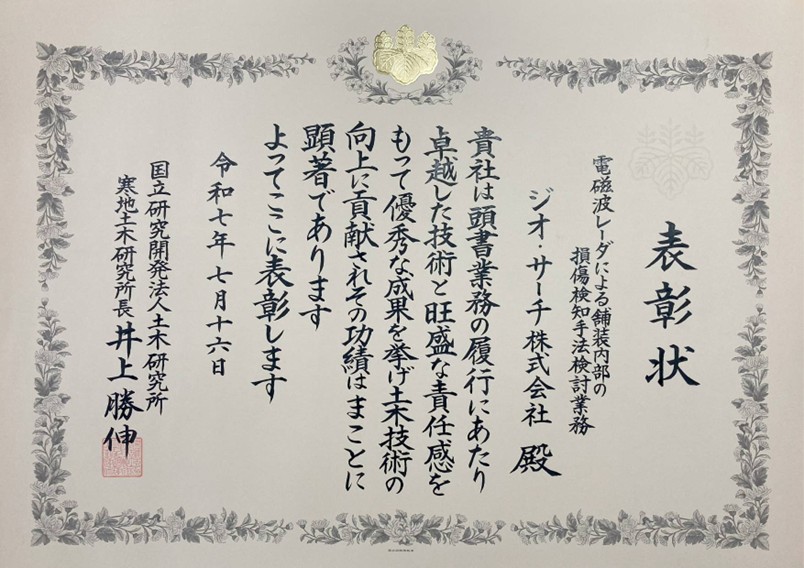 表彰状
電磁波レーダによる舗装内部の
損傷検知手法検討業務
ジオ・サーチ株式会社 殿
貴社は頭書業務の履行にあたり
卓越した技術と旺盛な責任感を
もって優秀な成果を挙げ土木技術の
向上に貢献されその功績はまことに
顕著であります
よってここに表彰します
令和七年七月十六日
国立研究開発法人土木研究所
寒地土木研究所長 井上勝伸